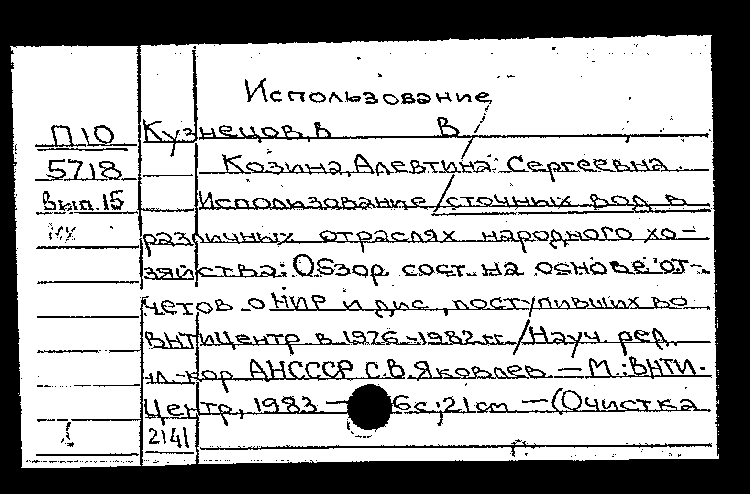 Использование
П10 Кузнецов, В В
5718 Козина, Алевтина Сергеевна.
Вып.15 Использование / сточных вод в
различных отраслях народного хо-
зяйства: Обзор сост. на основе от-
четов о НИР и дис., поступивших во
ВНТИЦентр в 1976-1982 гг. / Науч. ред.
чл.-кор АНСССР С.В. Яковлев. — М.: ВНТИ-
Центр, 1983. — 6с; 21 см — (Очистка
2141